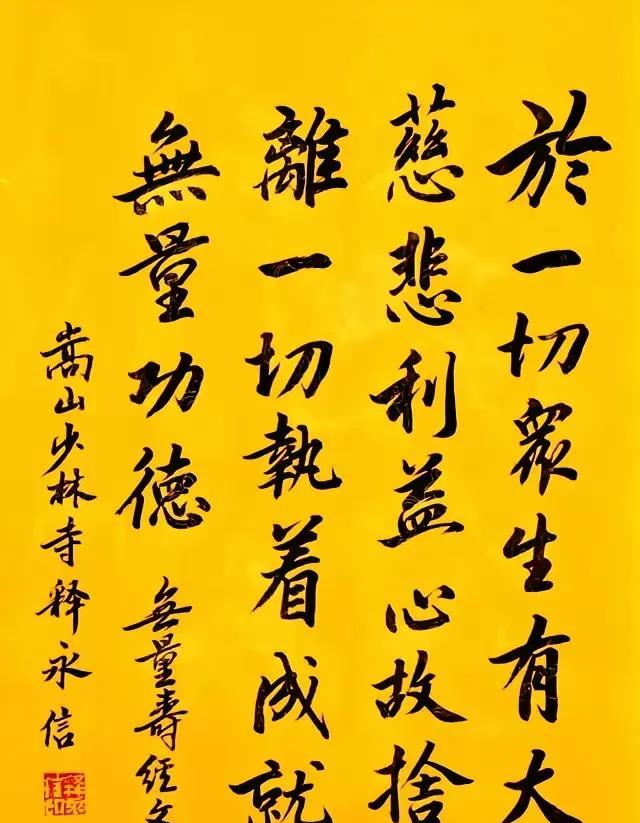 於一切眾生有大
慈悲利益心故捨
離一切執着成就
無量功德
無量壽經文
嵩山少林寺释永信